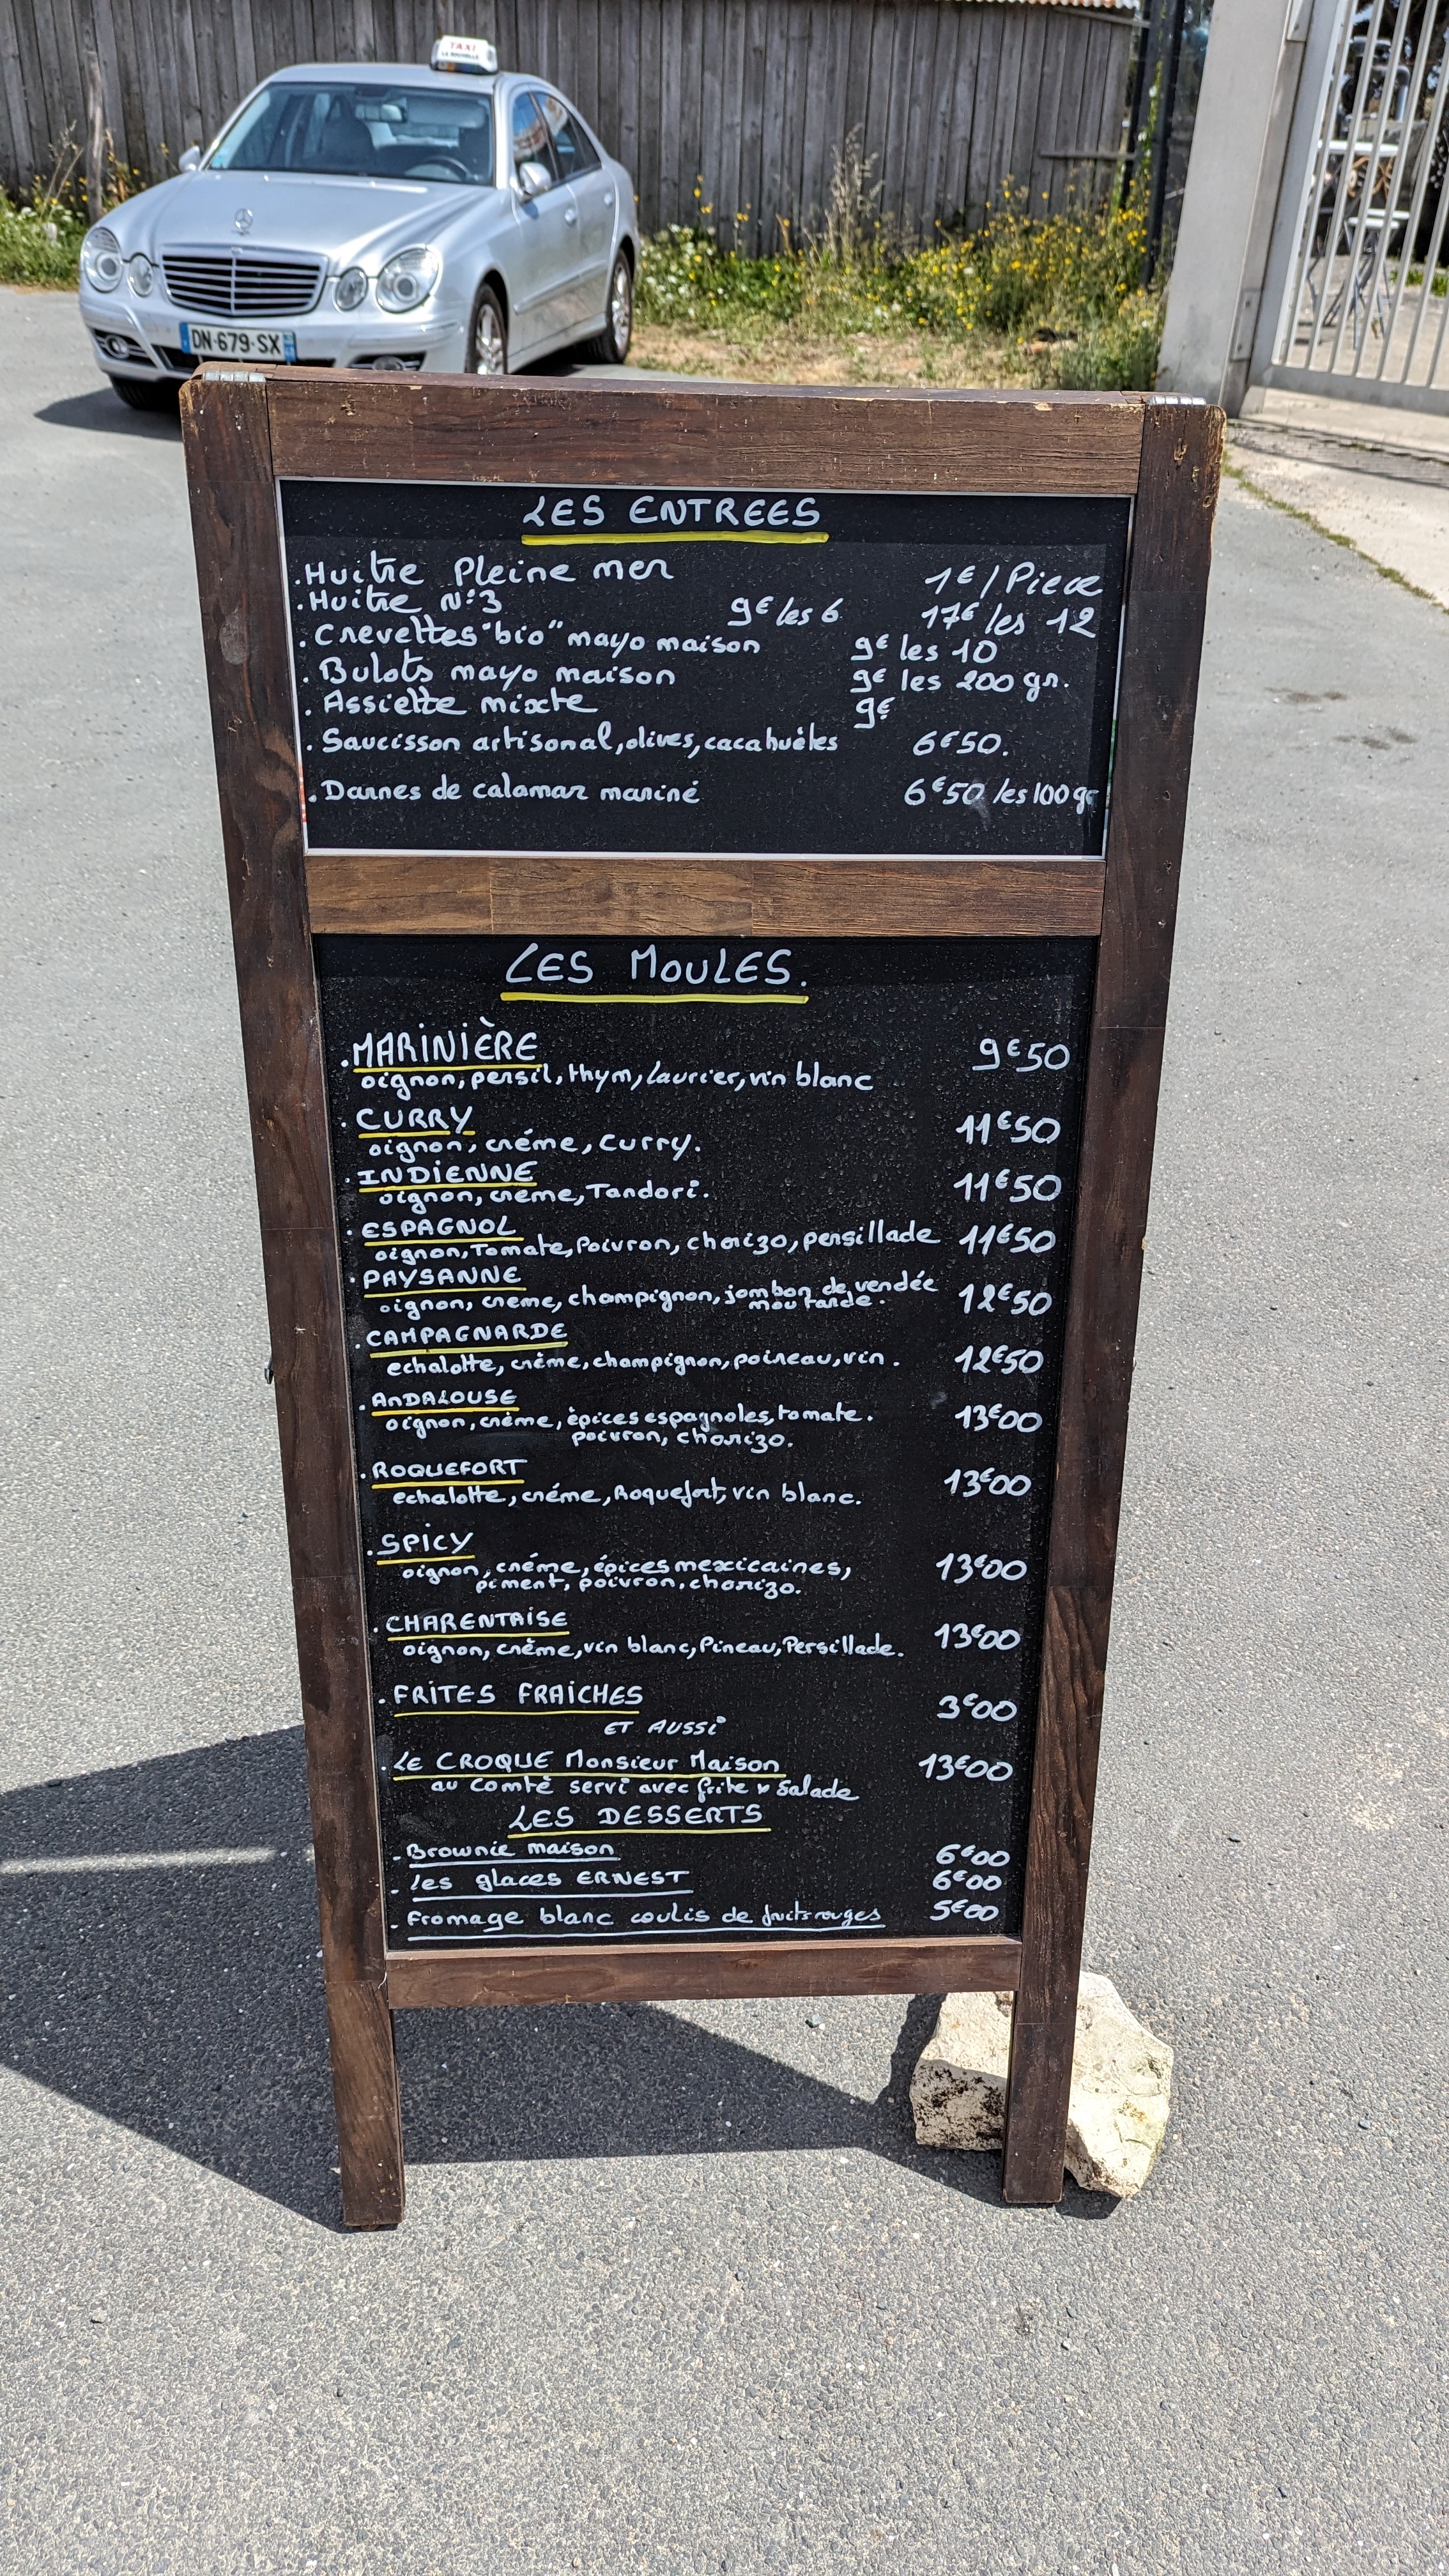 TAXI
DN-679-SX
LES ENTREES
.Huitre Pleine mer 1€/Piece
.Huitre N°3 9€ les 6 17€ les 12
.Crevettes "bio" mayo maison 9€ les 10
.Bulots mayo maison 9€ les 200 gr.
.Assiette mixte 9€
.Saucisson artisonal, olives, cacahuètes 6€50.
.Darnes de calamar mariné 6€50 les 100 gr
LES MOULES.
.MARINIÈRE 9€50
oignon, persil, thym, laurier, vin blanc
.CURRY 11€50
oignon, créme, Curry.
.INDIENNE 11€50
oignon, creme, Tandori.
.ESPAGNOL
oignon, Tomate, Poivron, chorizo, persillade 11€50
.PAYSANNE
oignon, creme, champignon, jombon de vendée 12€50
moutarde.
.CAMPAGNARDE
echalotte, crème, champignon, poireau, vin. 12€50
.AnDALOUSE
oignon, crème, èpices espagnoles, tomate. 13€00
poivron, chorizo.
.ROQUEFORT
echalotte, créme, Roquefort, vin blanc. 13€00
.SPICY
oignon, créme, épices mexicaines, 13€00
piment, poivron, chorizo.
.CHARENTAISE
oignon, crème, vin blanc, Pineau, Persillade. 13€00
.FRITES FRAICHES 3€00
ET AUSSI
.LE CROQUE Monsieur Maison 13€00
au Comté servi avec frite & Salade
LES DESSERTS
-Brownie maison 6€00
-les glaces ERNEST 6€00
-Fromage blanc coulis de fruits rouges 5€00